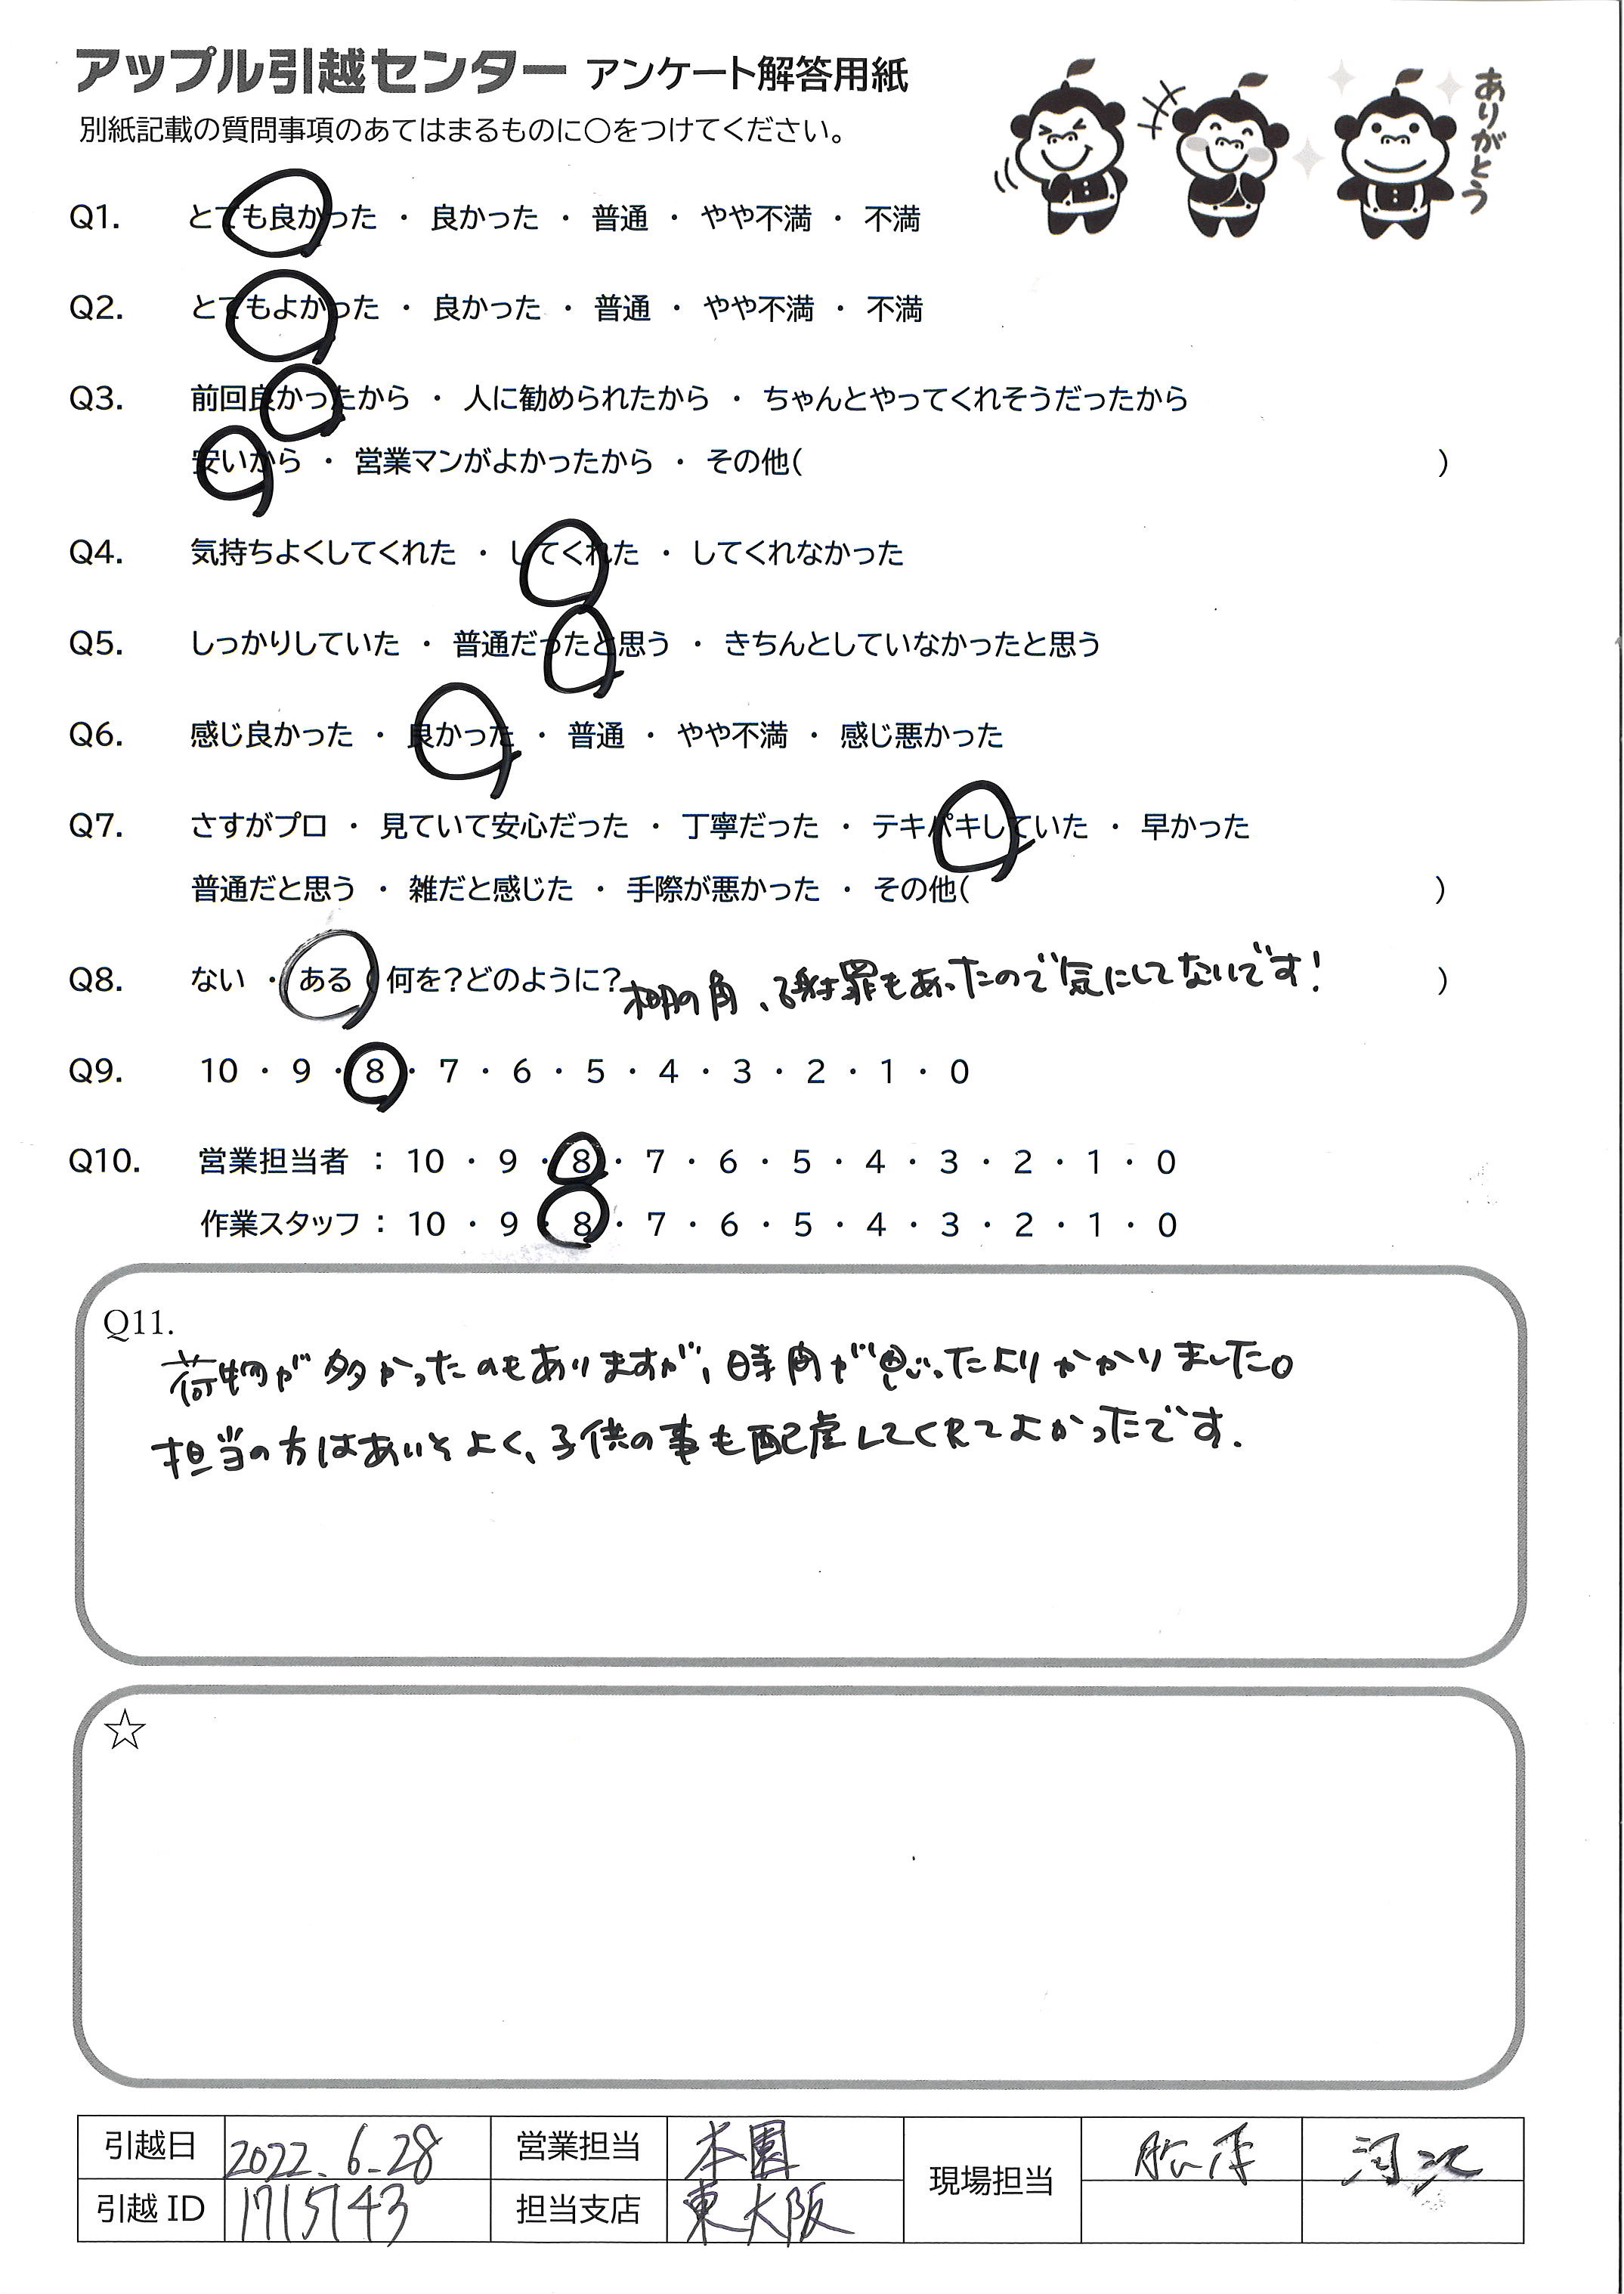 アップル引越センター アンケート解答用紙
別紙記載の質問事項のあてはまるものに○をつけてください。
ありがとう
Q1. とても良かった ・ 良かった ・ 普通 ・ やや不満 ・ 不満
Q2. とてもよかった ・ 良かった ・ 普通 ・ やや不満 ・ 不満
Q3. 前回良かったから ・ 人に勧められたから ・ ちゃんとやってくれそうだったから
安いから ・ 営業マンがよかったから ・ その他( )
Q4. 気持ちよくしてくれた ・ してくれた ・ してくれなかった
Q5. しっかりしていた ・ 普通だったと思う ・ きちんとしていなかったと思う
Q6. 感じ良かった ・ 良かった ・ 普通 ・ やや不満 ・ 感じ悪かった
Q7. さすがプロ ・ 見ていて安心だった ・ 丁寧だった ・ テキパキしていた ・ 早かった
普通だと思う ・ 雑だと感じた ・ 手際が悪かった ・ その他( )
Q8. ない ・ ある ( 何を?どのように? 棚の角、謝罪もあったので気にしてないです! )
Q9. 10 ・ 9 ・ 8 ・ 7 ・ 6 ・ 5 ・ 4 ・ 3 ・ 2 ・ 1 ・ 0
Q10. 営業担当者 : 10 ・ 9 ・ 8 ・ 7 ・ 6 ・ 5 ・ 4 ・ 3 ・ 2 ・ 1 ・ 0
作業スタッフ : 10 ・ 9 ・ 8 ・ 7 ・ 6 ・ 5 ・ 4 ・ 3 ・ 2 ・ 1 ・ 0
Q11.
荷物が多かったのもありますが、時間が思ったよりかかりました。
担当の方はあいそよく、子供の事も配慮してくれてよかったです.
☆
引越日 2022.6.28 営業担当 本園 現場担当
引越ID 1715143 担当支店 東大阪